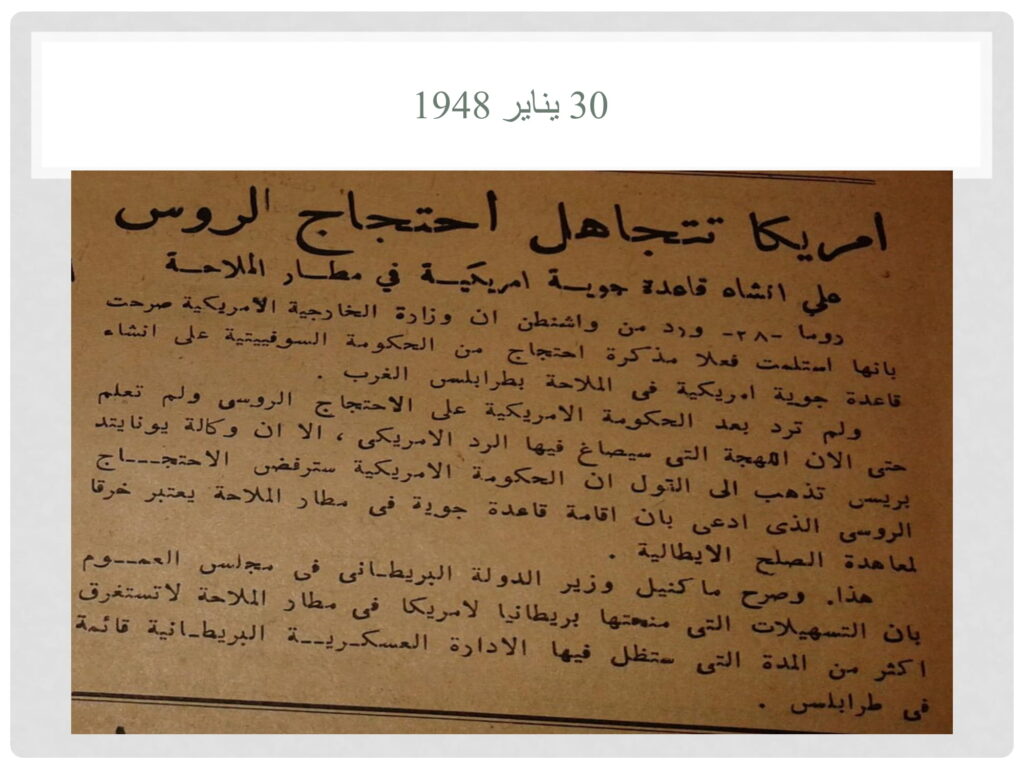 30 يناير 1948
امريكا تتجاهل احتجاج الروس
على انشاء قاعدة جوية امريكية في مطار الملاحة
روما -٢٨- ورد من واشنطن ان وزارة الخارجية الامريكية صرحت
بانها استلمت فعلا مذكرة احتجاج من الحكومة السوفييتية على انشاء
قاعدة جوية امريكية فى الملاحة بطرابلس الغرب .
ولم ترد بعد الحكومة الامريكية على الاحتجاج الروسى ولم تعلم
حتى الان اللهجة التى سيصاغ فيها الرد الامريكى ، الا ان وكالة يونايتد
بريس تذهب الى القول ان الحكومة الامريكية سترفض الاحتجاج
الروسى الذى ادعى بان اقامة قاعدة جوية فى مطار الملاحة يعتبر خرقا
لمعاهدة الصلح الايطالية .
هذا. وصرح ماكنيل وزير الدولة البريطانى فى مجلس العموم
بان التسهيلات التى منحتها بريطانيا لامريكا فى مطار الملاحة لاتستغرق
اكثر من المدة التى ستظل فيها الادارة العسكرية البريطانية قائمة
فى طرابلس .